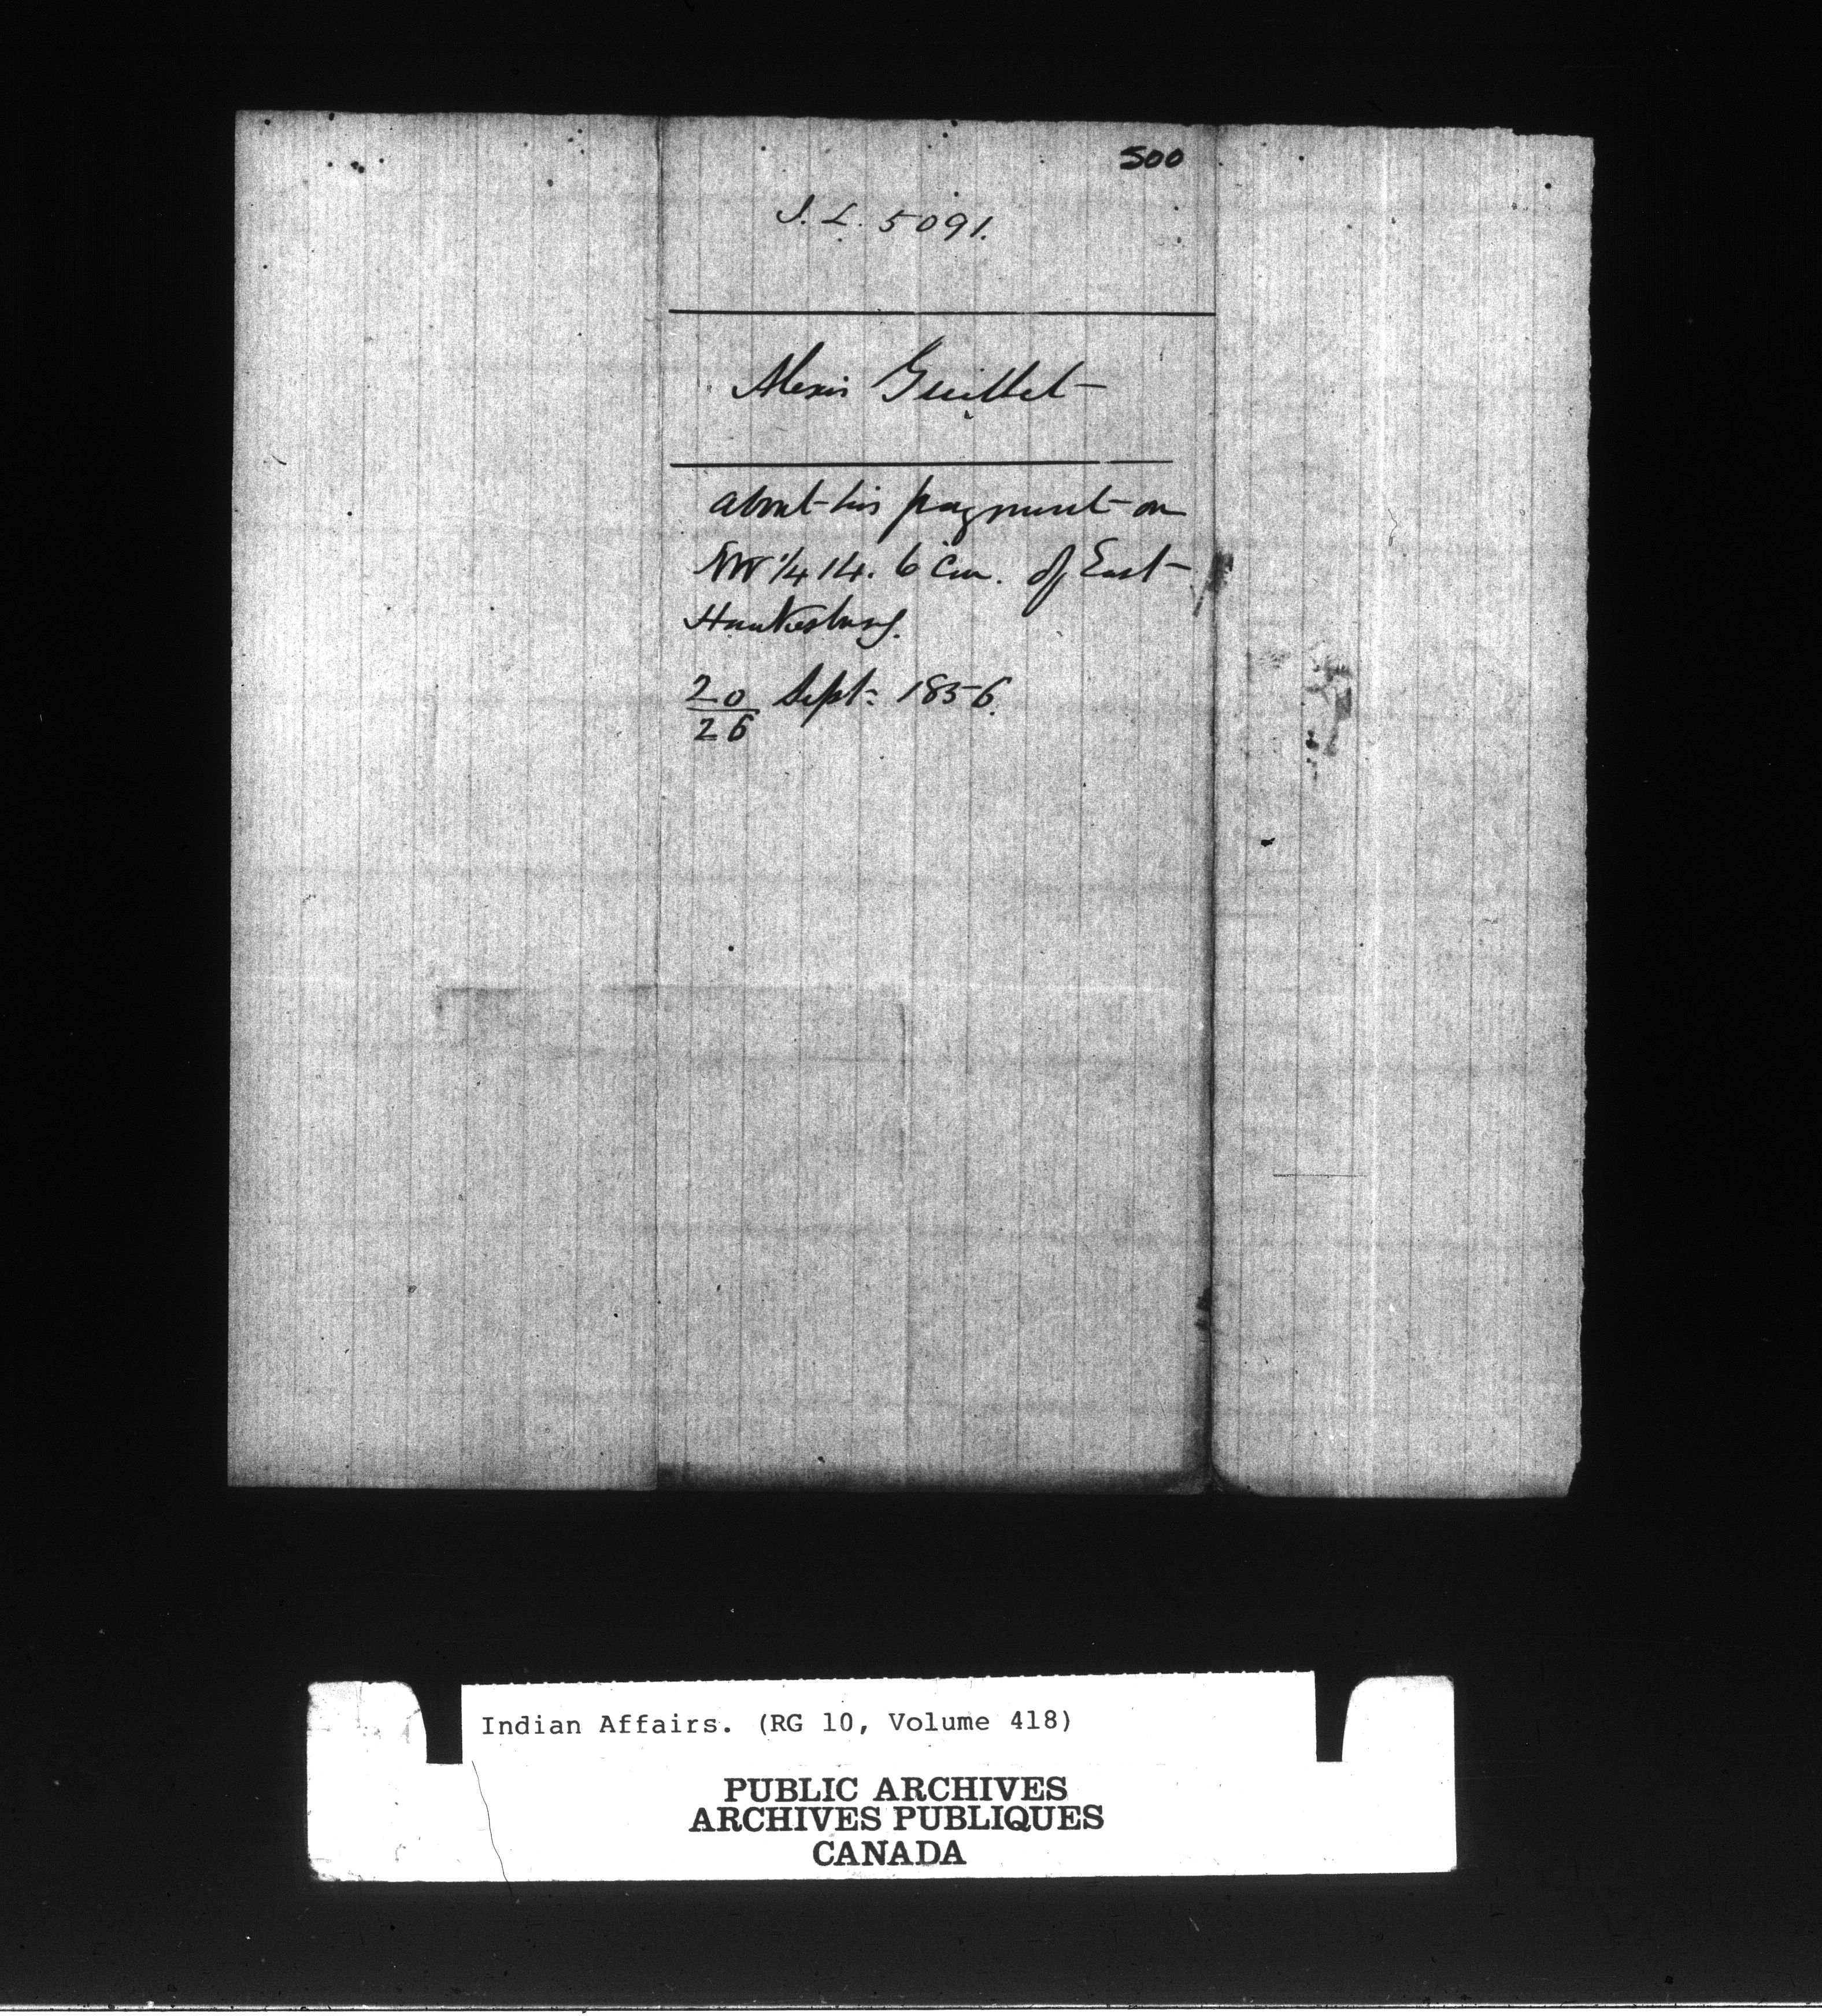 500
I. L. 5091.
Alexis Guillet
about his payment on
NW 1/4 14. 6 Con. of East
Hawkesbury.
20/26 Sept: 1856.
Indian Affairs. (RG 10, Volume 418)
PUBLIC ARCHIVES
ARCHIVES PUBLIQUES
CANADA